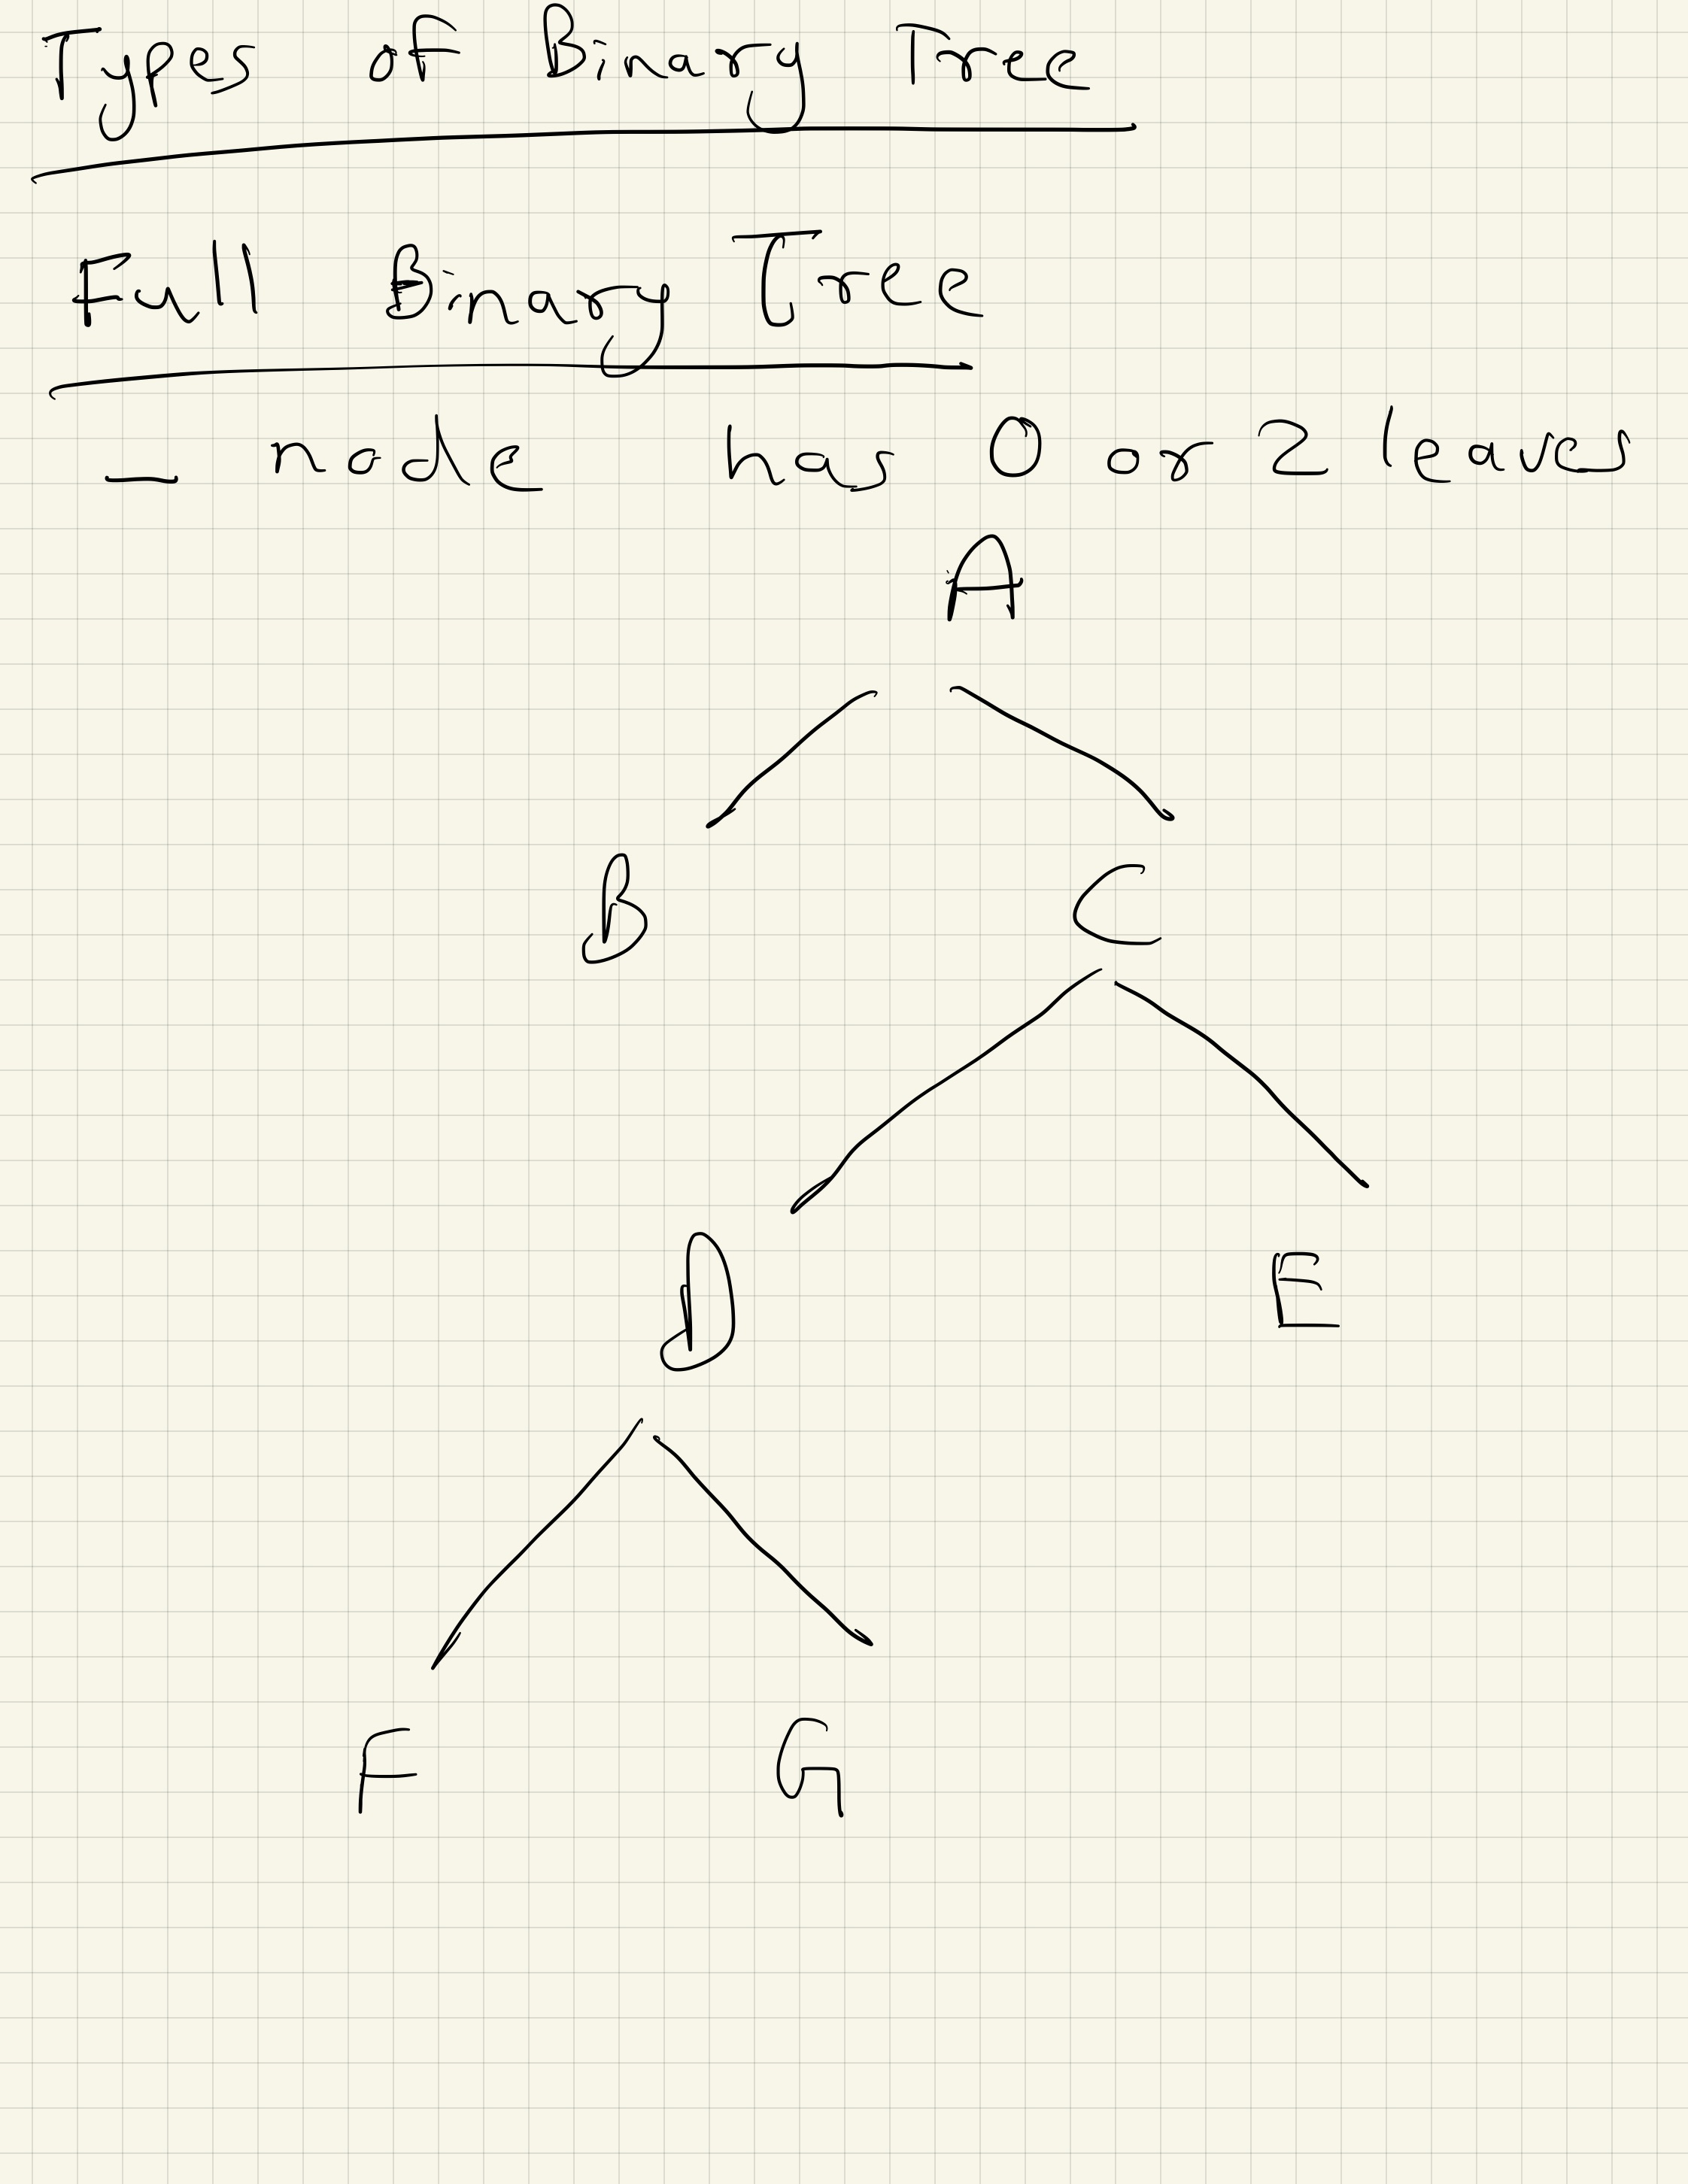 Types of Binary Tree
Full Binary Tree
- node has 0 or 2 leaves
A
B C
D E
F G